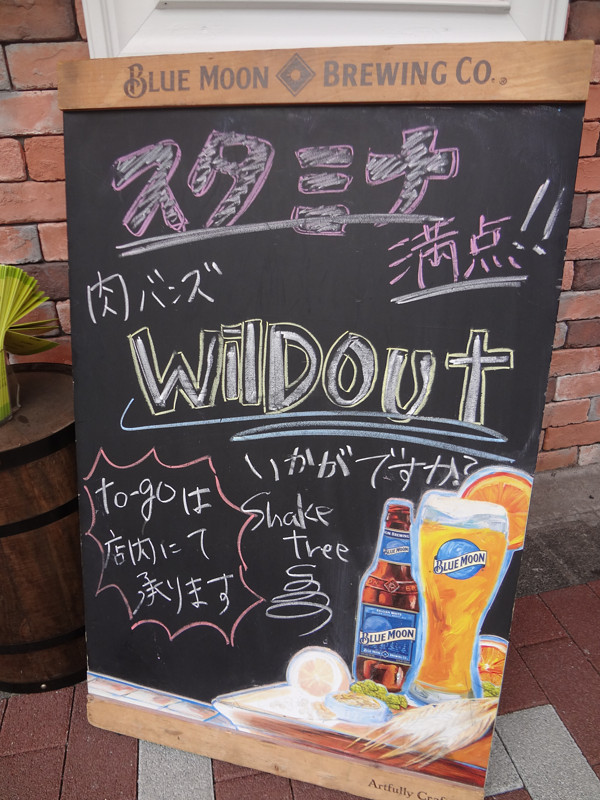 BLUE MOON BREWING CO.®
スタミナ
満点!!
肉バンズ
WilDOUt
いかがですか?
to-goは
店内にて
承ります
Shake
tree
BLUE MOON
BLUE MOON
BLUE MOON
Artfully Craf